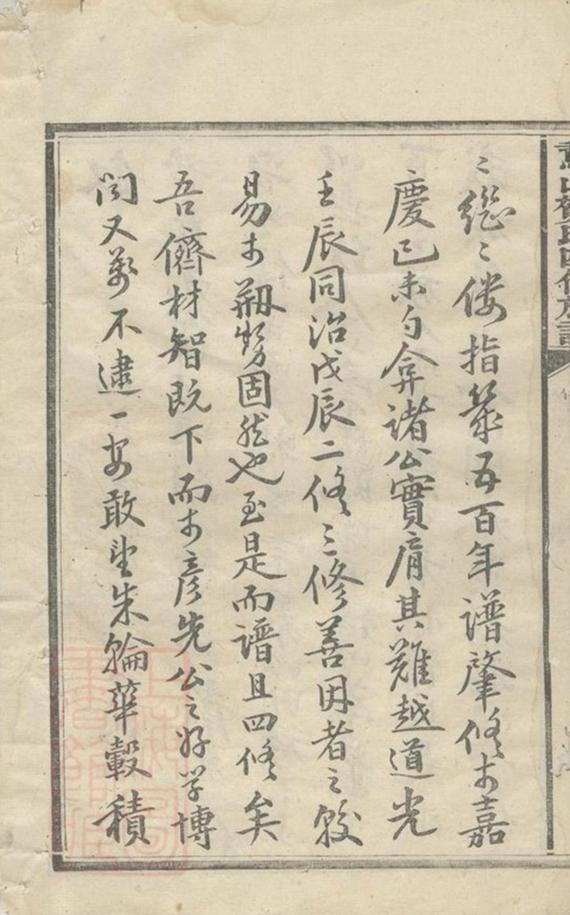 ミ繼ミ僂指箓五百年譜肇修於嘉
慶己未勺弇諸公實肩其難越道光
壬辰同治戊辰二修三修善因者之較
易於籾勢固然也至是而譜且四修矣
吾儕材智既下而於彥先公之好学博
闻又萬不逮一安敢望朱輪華轂積